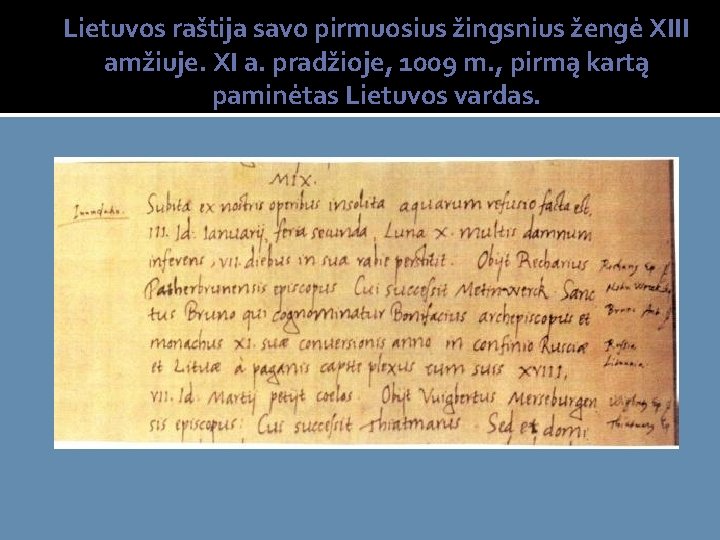 Lietuvos raštija savo pirmuosius žingsnius žengė XIII
amžiuje. XI a. pradžioje, 1009 m. , pirmą kartą
paminėtas Lietuvos vardas.
MIX.
Subita ex nostris operibus insolita aquarum refusio facta est,
III. Id. Ianuarij, feria secunda, Luna X. multis damnum
inferens, VII. diebus in sua rabie perstitit. Obijt Recharius
Patherbrunensis episcopus Cui successit Metinwerck. Sanc
tus Bruno qui cognominatur Bonifacius archepiscopus et
monachus XI. suæ conversionis anno in confinio Rusciæ
et Lituæ à paganis capite plexus cum suis XVIII,
VII. Id. Martij petijt coelos. Obijt Vuigbertus Merseburgen
sis episcopus: Cui successit Thiatmarus Sed et domi
Bruno
Russia
Lituania